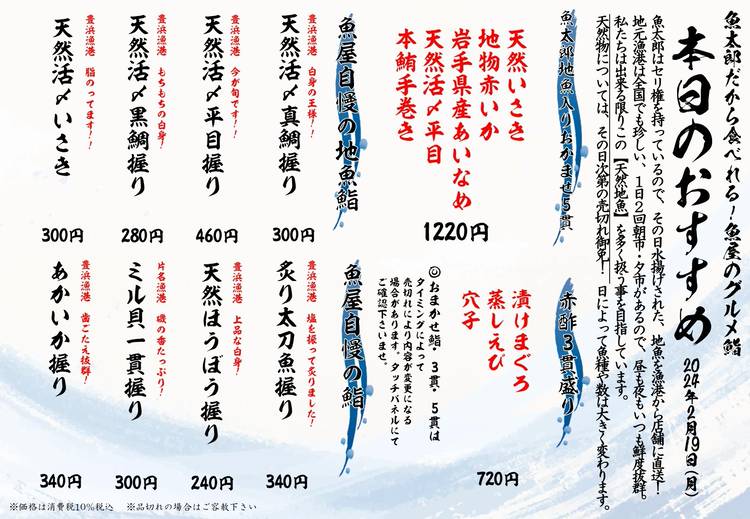 魚太郎だから食べれる！魚屋のグルメ鮨
本日のおすすめ
2024年2月19日（月）
魚太郎はセリ権を持っているので、その日水揚げされた、地魚を漁港から店舗に直送！
地元漁港は全国でも珍しい、1日2回朝市・夕市があるので、昼も夜もいつも鮮度抜群。
私たちは出来る限りこの【天然地魚】を多く扱う事を目指しています。
天然物については、その日次第の売切れ御免！日によって魚種や数は大きく変わります。
魚太郎地魚入りおかませ5貫
天然いさき
地物赤いか
岩手県産あいなめ
天然活〆平目
本鮪手巻き
1220円
魚屋自慢の地魚鮨
豊浜漁港 白身の王様！！
天然活〆真鯛握り
300円
豊浜漁港 今が旬です！
天然活〆平目握り
460円
豊浜漁港 もちもちの白身！
天然活〆黒鯛握り
280円
豊浜漁港 脂のってます！！
天然活〆いさき
300円
赤酢3貫盛り
漬けまぐろ
蒸しえび
穴子
720円
◎おまかせ鮨・3貫・5貫は
タイミングによって
売切れにより内容が変更になる
場合があります。タッチパネルにて
ご確認下さいませ。
魚屋自慢の鮨
豊浜漁港 塩を振って炙りました！
炙り太刀魚握り
340円
豊浜漁港 上品な白身！
天然ほうぼう握り
240円
片名漁港 磯の香たっぷり！
ミル貝一貫握り
300円
豊浜漁港 歯ごたえ抜群！
あかいか握り
340円
※価格は消費税10%税込 ※品切れの場合はご容赦下さい